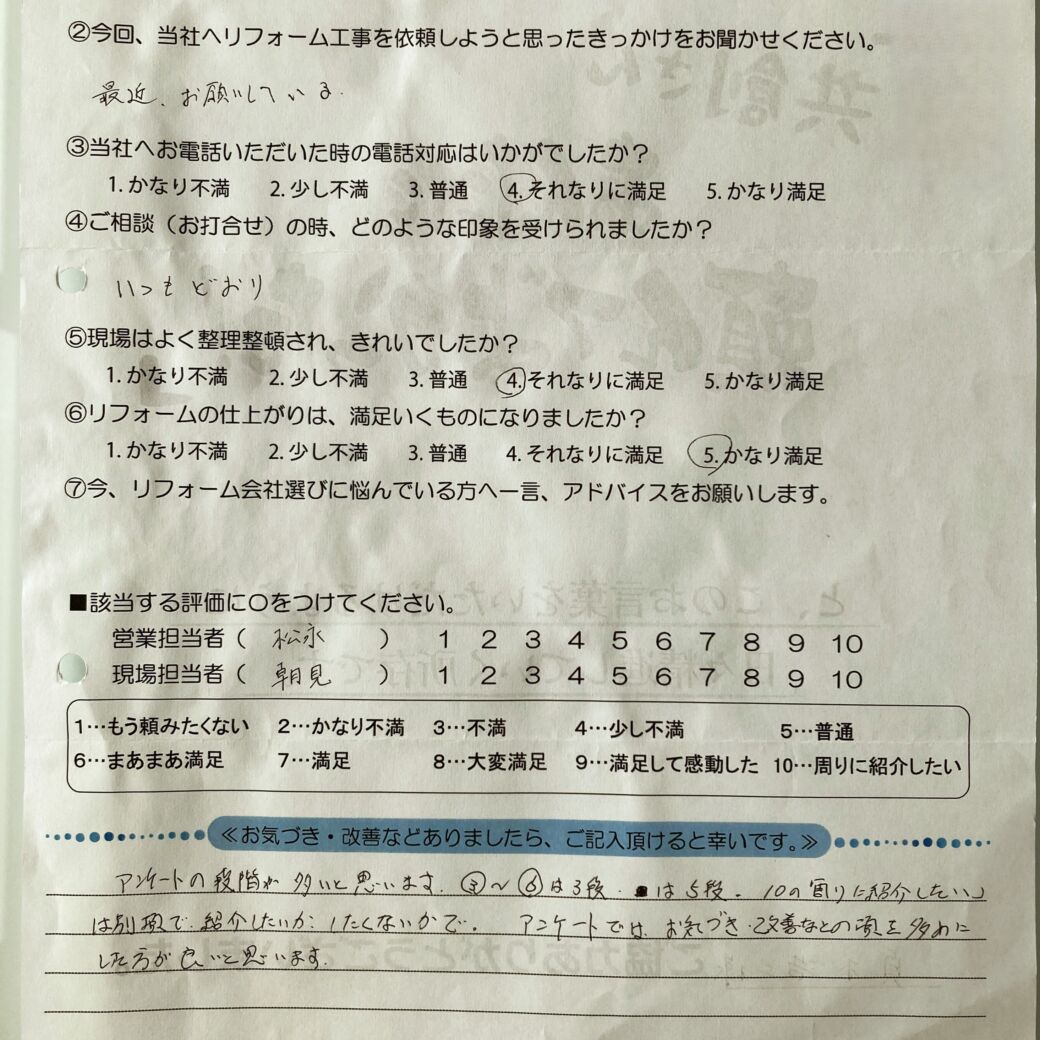 ②今回、当社へリフォーム工事を依頼しようと思ったきっかけをお聞かせください。
最近、お願いしている.
③当社へお電話いただいた時の電話対応はいかがでしたか？
1. かなり不満 2. 少し不満 3. 普通 4. それなりに満足 5. かなり満足
④ご相談（お打合せ）の時、どのような印象を受けられましたか？
いつもどおり
⑤現場はよく整理整頓され、きれいでしたか？
1. かなり不満 2. 少し不満 3. 普通 4. それなりに満足 5. かなり満足
⑥リフォームの仕上がりは、満足いくものになりましたか？
1. かなり不満 2. 少し不満 3. 普通 4. それなりに満足 5. かなり満足
⑦今、リフォーム会社選びに悩んでいる方へ一言、アドバイスをお願いします。
■該当する評価に○をつけてください。
営業担当者（ 松永 ） 1 2 3 4 5 6 7 8 9 10
現場担当者（ 朝見 ） 1 2 3 4 5 6 7 8 9 10
1…もう頼みたくない 2…かなり不満 3…不満 4…少し不満 5…普通
6…まあまあ満足 7…満足 8…大変満足 9…満足して感動した 10…周りに紹介したい
≪お気づき・改善などありましたら、ご記入頂けると幸いです。≫
アンケートの段階が多いと思います. ③～⑥は3段. ■は5段。10の周りに紹介したい」
は別項で、紹介したいか、したくないかで。 アンケートでは、お気づき・改善などの項を多めに
した方が良いと思います.